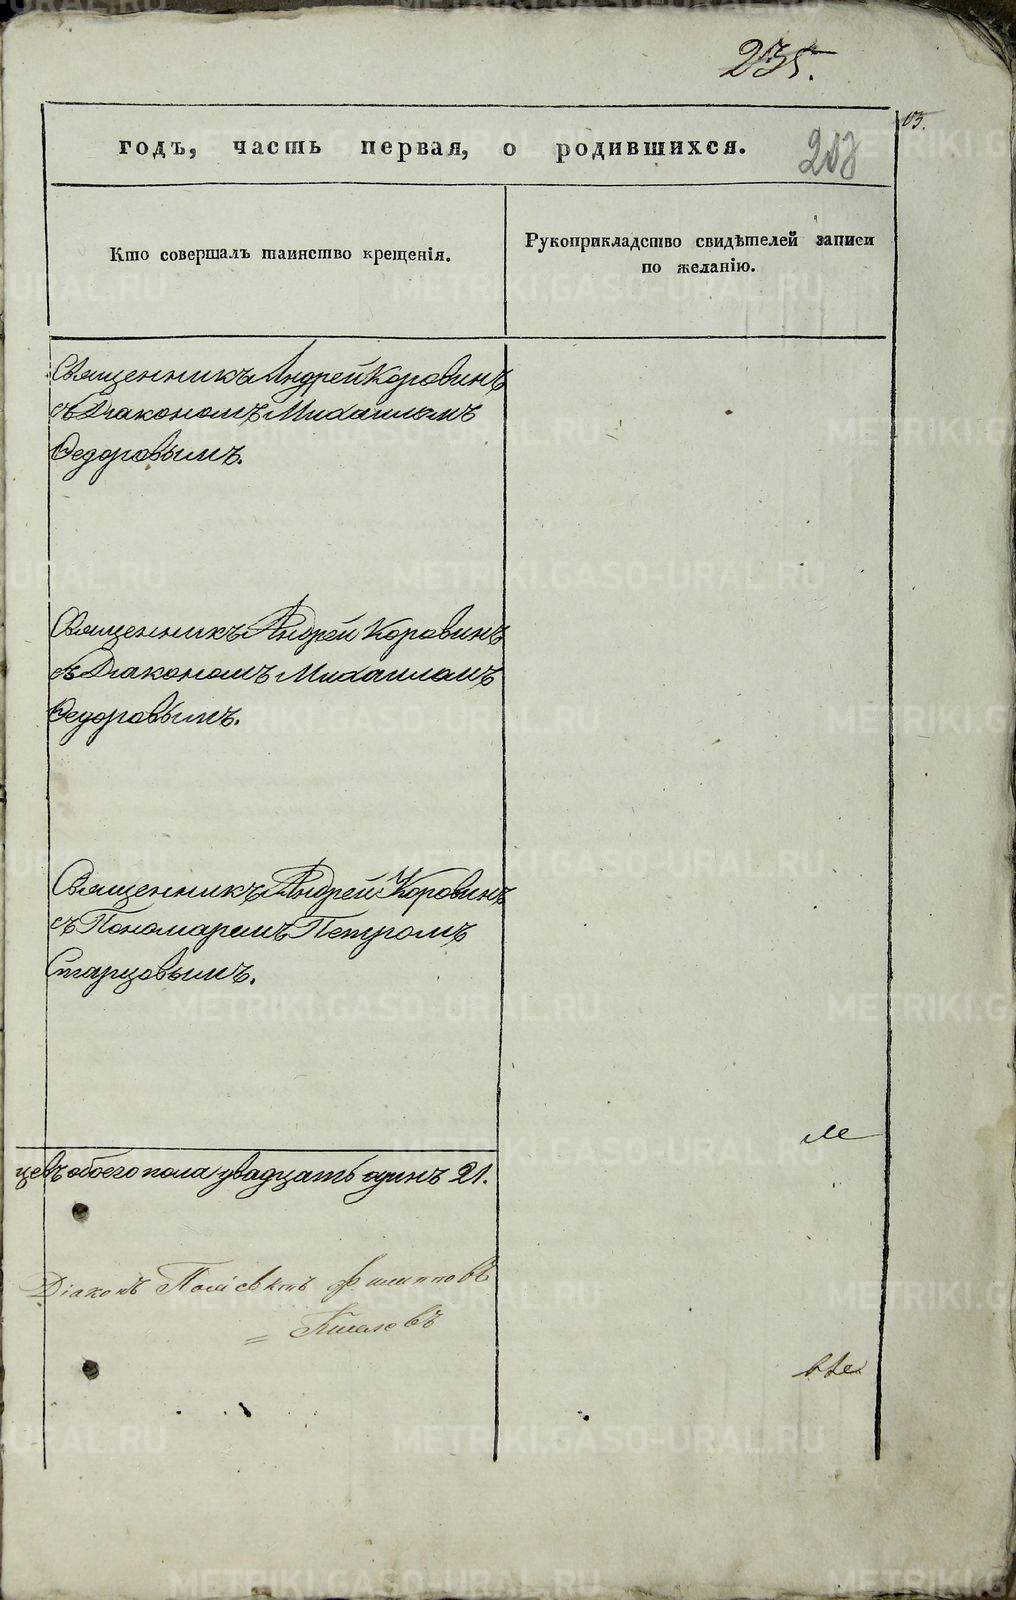 235.
годъ, часть первая, о родившихся.
Кто совершалъ таинство крещенія.
Рукоприкладство свидѣтелей записи
по желанію.
Священникъ Андрей Коровинъ
съ Діакономъ Михаиломъ
Ѳедоровымъ.
Священникъ Андрей Коровинъ
съ Діакономъ Михаиломъ
Ѳедоровымъ.
Священникъ Андрей Коровинъ
съ Пономаремъ Петромъ
Старцовымъ.
цевъ обоего пола двадцать одинъ 21.
Діаконъ Филипповъ
METRIKI.GASO-URAL.RU